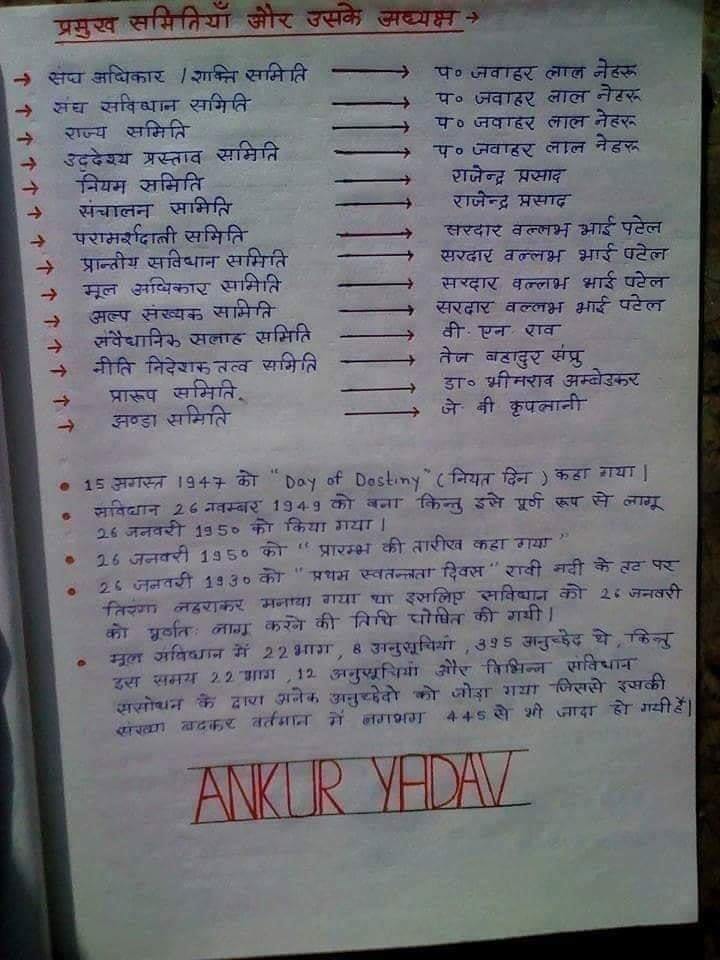 प्रमुख समितियाँ और उसके अध्यक्ष →
→ संघ अधिकार / शक्ति समिति → प० जवाहर लाल नेहरू
→ संघ सविधान समिति → प० जवाहर लाल नेहरू
→ राज्य समिति → प० जवाहर लाल नेहरू
→ उद्देश्य प्रस्ताव समिति → प० जवाहर लाल नेहरू
→ नियम समिति → राजेन्द्र प्रसाद
→ संचालन समिति → राजेन्द्र प्रसाद
→ परामर्शदाती समिति → सरदार वल्लभ भाई पटेल
→ प्रान्तीय सविधान समिति → सरदार वल्लभ भाई पटेल
→ मूल अधिकार समिति → सरदार वल्लभ भाई पटेल
→ अल्प संख्यक समिति → सरदार वल्लभ भाई पटेल
→ संवैधानिक सलाह समिति → वी. एन राव
→ नीति निदेशक तत्व समिति → तेज बहादुर संप्रु
→ प्रारूप समिति. → डा० भीमराव अम्बेडकर
→ झण्डा समिति → जे. वी कृपलानी
• 15 अगस्त 1947 को "Day of Dostiny" (नियत दिन) कहा गया |
• संविधान 26 नवम्बर 1949 को बना किन्तु इसे पूर्ण रूप से लागू
26 जनवरी 1950 को किया गया |
• 26 जनवरी 1950 को "प्रारम्भ की तारीख कहा गया"
• 26 जनवरी 1930 को "प्रथम स्वतन्त्रता दिवस" रावी नदी के तट पर
तिरंगा लहराकर मनाया गया था इसलिए सविधान को 26 जनवरी
को पूर्णतः लागू करने की तिथि घोषित की गयी |
• मूल संविधान में 22 भाग, 8 अनुसूचियां, 395 अनुच्छेद थे, किन्तु
इस समय 22 भाग, 12 अनुसूचियां और विभिन्न संविधान
संसोधन के द्वारा अनेक अनुच्छेदो को जोड़ा गया जिससे इसकी
संख्या बढ़कर वर्तमान में लगभग 445 से भी जादा हो गयी है |
ANKUR YADAV